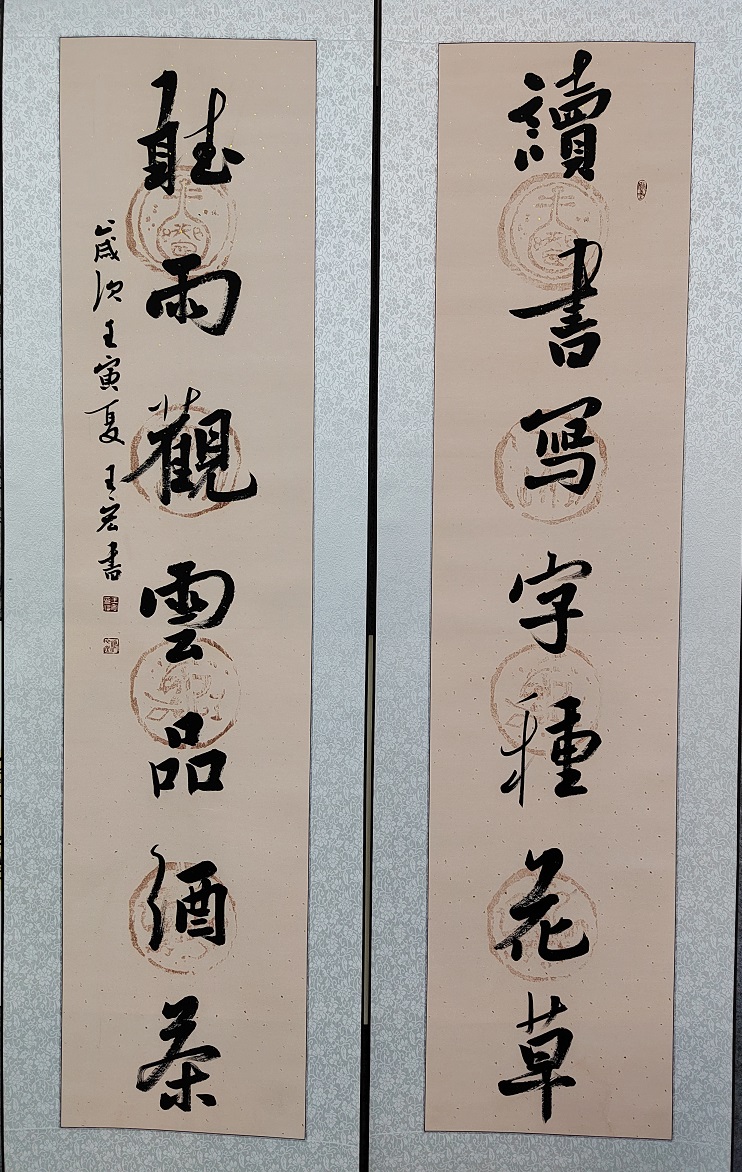 讀書写字種花草
聽雨觀雲品酒茶
歲次壬寅夏王宏书